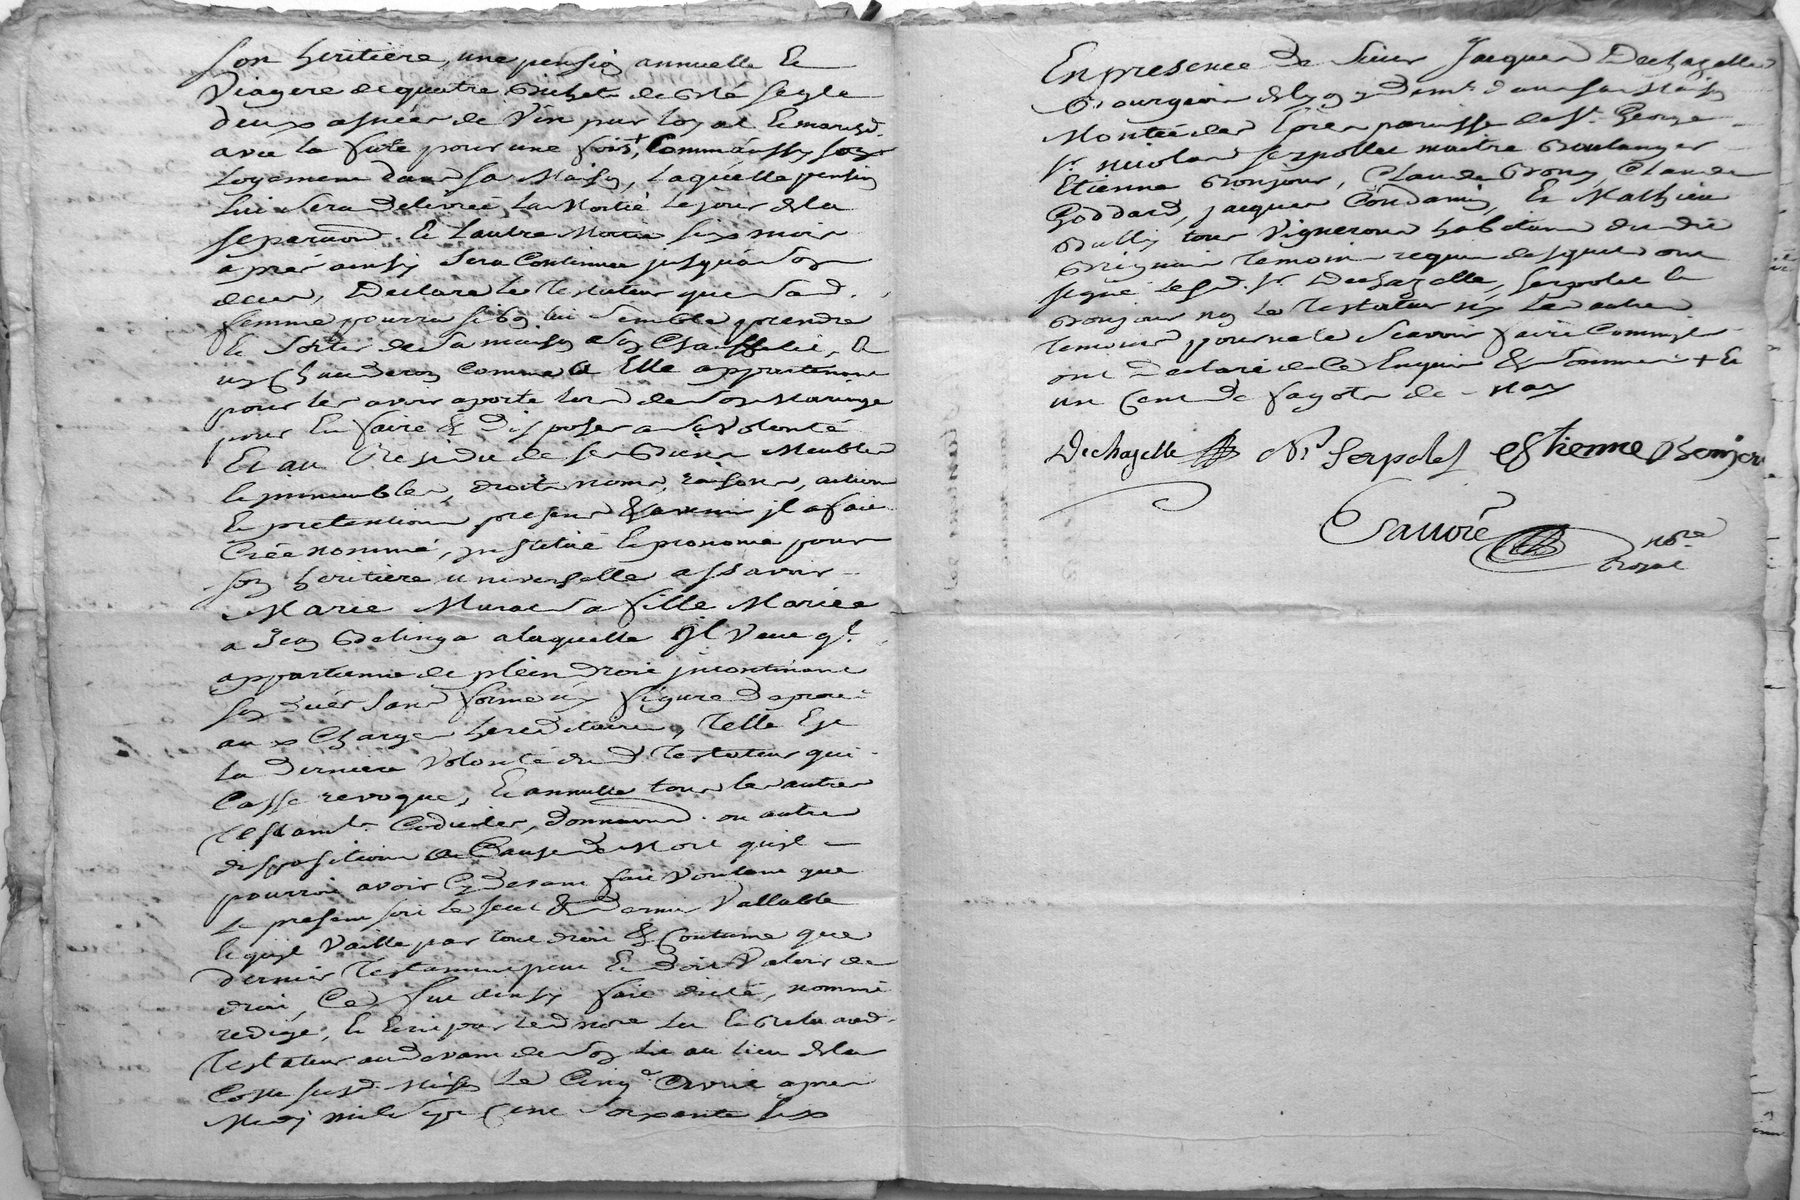 son heritiere, une pension annuelle Et
Viagere de quatre Bichets de Blé segle
deux asnées de Vin pur loyal Et march.d
avec la futte pour une fois +, Comm'aussy son
Logement dans sa Maison, laquelle pension
lui sera delivreé La Moitié le jour de la
separaon. Et l'autre Moitié six mois
apres ainsy sera Continuee jusqu'a son
deces, Declare le Testateur que sad.
femme pourra si bon lui semble prendre
Et sortir de sa maison son Et
un Chauderon comme a Elle appartenant
pour les avoir aporté lors de son Mariage
pour En faire & disposer a sa Volonté
Et au Residu de ses Biens Meubles
Immeubles, droits noms, raisons, actions
Et pretentions presens & avenir jl a fait
Créé nommé, institué Et prononcé pour
son heritiere universelle assavoir
Marie Murat sa fille Mariée
a Jean Belinga a laquelle jl Veut q.l
appartienne de plein droit jncontinant
son decés sans forme ny figure de procé
aux Charges hereditaires, Telle Est
la derniere Volonté dud. Testateur qui
Casse revoque, Et annulle tous les autres
Testamts. Codiciles, Donnaons. ou autres
dispositions a Cause de Mort qu'jl
pourroit avoir Cy devant fait Voulant que
Le present soit le seul & dernier Vallable
Et qu'jl Vaille par tout droit & Coutume que
dernier Testament peut Et doit Valoir de
droit, Ce fut ainsy fait dicté, nommé
redigé, Et Ecrit par led. nore Lu Et Relu aud.
Testateur au devant de son Lit au lieu de la
Coste susd. Maison Le Cinqe. avril apres
Midy mil sept Cent soixante six
En presence de sieur Jacques Dechazelle
Bourgeois de Lyon y demt. dans sa Maison
Montée des paroisse de St. George
sr. nicolas Serpollet maitre Boulanger
Etienne Bonjour, Claude Brony, Claude
Goddard, jacques Condamin, Et Mathieu
Bully tous Vignerons habitans dudit
Brignais temoins requis desquels ont
signé Led. sr. Dechazelle, Serpollet Et
Bonjour non Le Testateur ny Les autres
temoins pour ne le scavoir faire Comm'jls
ont declaré de Ce Enquis & sommés + Et
un Cent de fagots de - 
Dechazelle Ns Serpolet estienne Bonjour
Sauvore nore
Royal